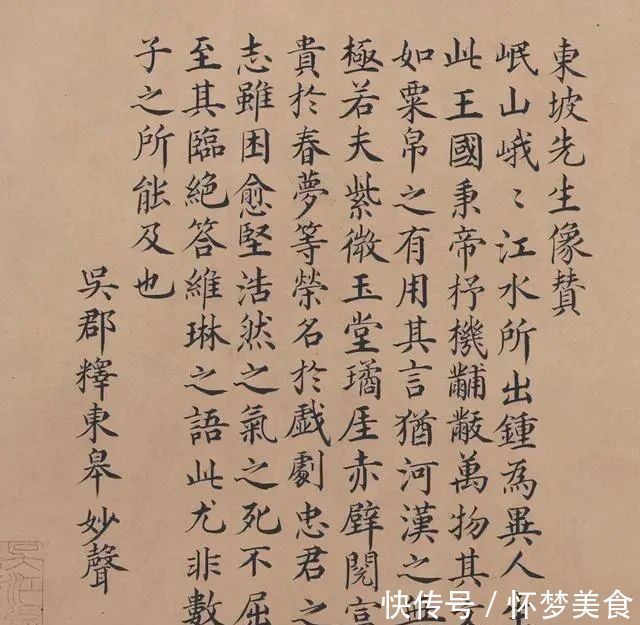 東坡先生像贊
岷山峨〻江水所出鍾為異人生
此王國秉帝杼機黼黻萬物其文
如粟帛之有用其言猶河漢之無
極若夫紫微玉堂璚厓赤壁閱富
貴於春夢等榮名於戲劇忠君之
志雖困愈堅浩然之氣之死不屈
至其臨絕答維琳之語此尤非數
子之所能及也
吳郡釋東皋妙聲
快传号／怀梦美食